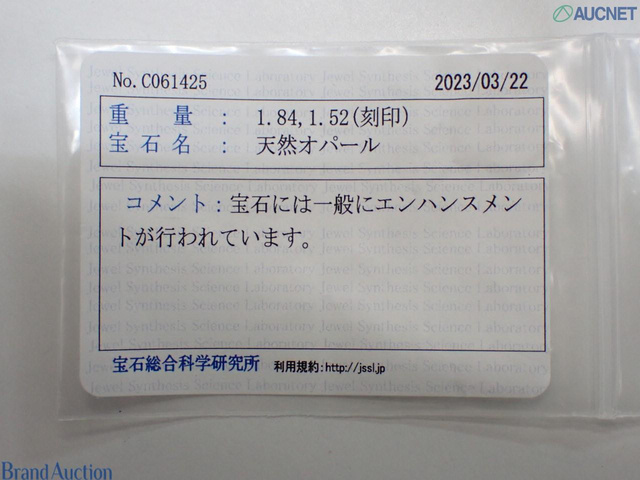 AUCNET
No.C061425 2023/03/22
重 量 : 1.84,1.52(刻印)
宝石名 : 天然オパール
コメント：宝石には一般にエンハンスメン
トが行われています。
Jewel Synthesis Science Laboratory
宝石総合科学研究所 利用規約:http://jssl.jp
Brand Auction